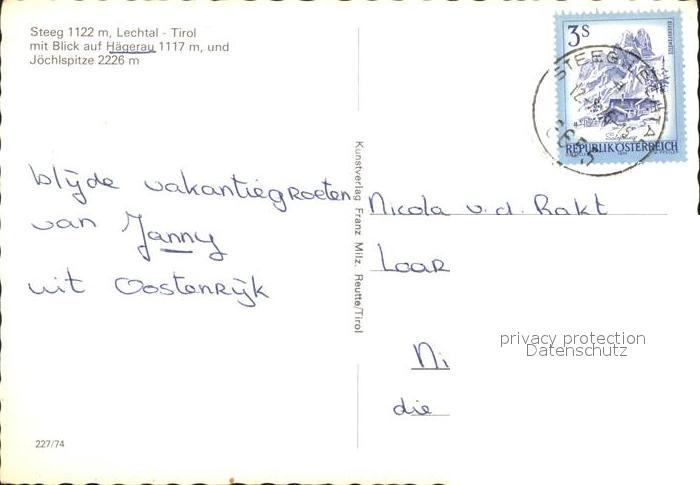 Steeg 1122 m, Lechtal - Tirol
mit Blick auf Hägerau 1117 m, und
Jöchlspitze 2226 m
3 S
STEEG
REPUBLIK ÖSTERREICH
blijde vakantiegroeten
van Janny
uit Oostenrijk
Kunstverlag Franz Milz, Reutte/Tirol
Nicola v.d. Rakt
Laar
Ni
die
privacy protection
Datenschutz
227/74